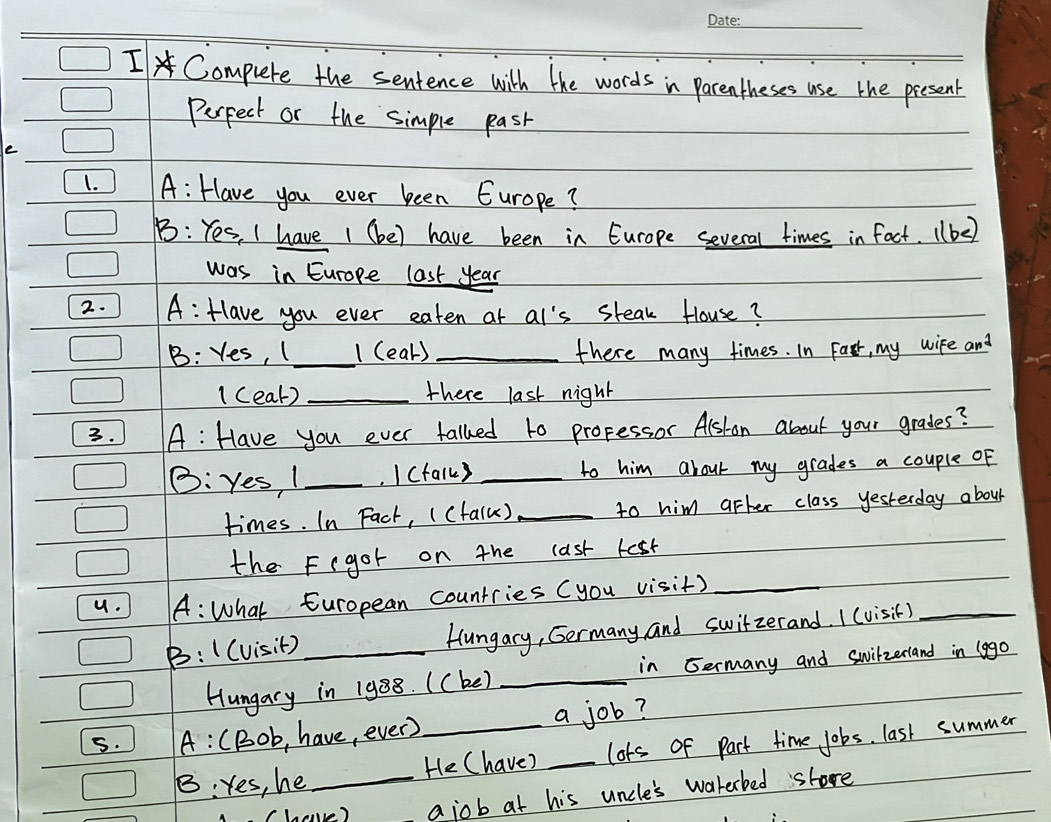 Date:
I * Complete the sentence with the words in parentheses use the present
perfect or the simple past
1. A: Have you ever been Europe?
B: Yes, I have I (be) have been in Europe several times in fact. I (be)
was in Europe last year
2. A: Have you ever eaten at al's steak House?
B: Yes, I ____ I (eat) ________ there many times. In Fact, my wife and
I (eat) ________ there last night
3. A: Have you ever talked to professor Alston about your grades?
B: Yes, I ____. I (talk) ______ to him about my grades a couple OF
times. In Fact, I (talk) ______ to him after class yesterday about
the F I got on the last test
4. A: What European countries (you visit) ________
B: I (visit) ________ Hungary, Germany, and switzerand. I (visit) ________
Hungary in 1988. I (be) ________ in Germany and Switzerland in 1990
5. A: (Bob, have, ever) ________ a job?
B: Yes, he ________ He (have) ____ lots OF part time jobs. last summer
(have) a job at his uncle's waterbed store